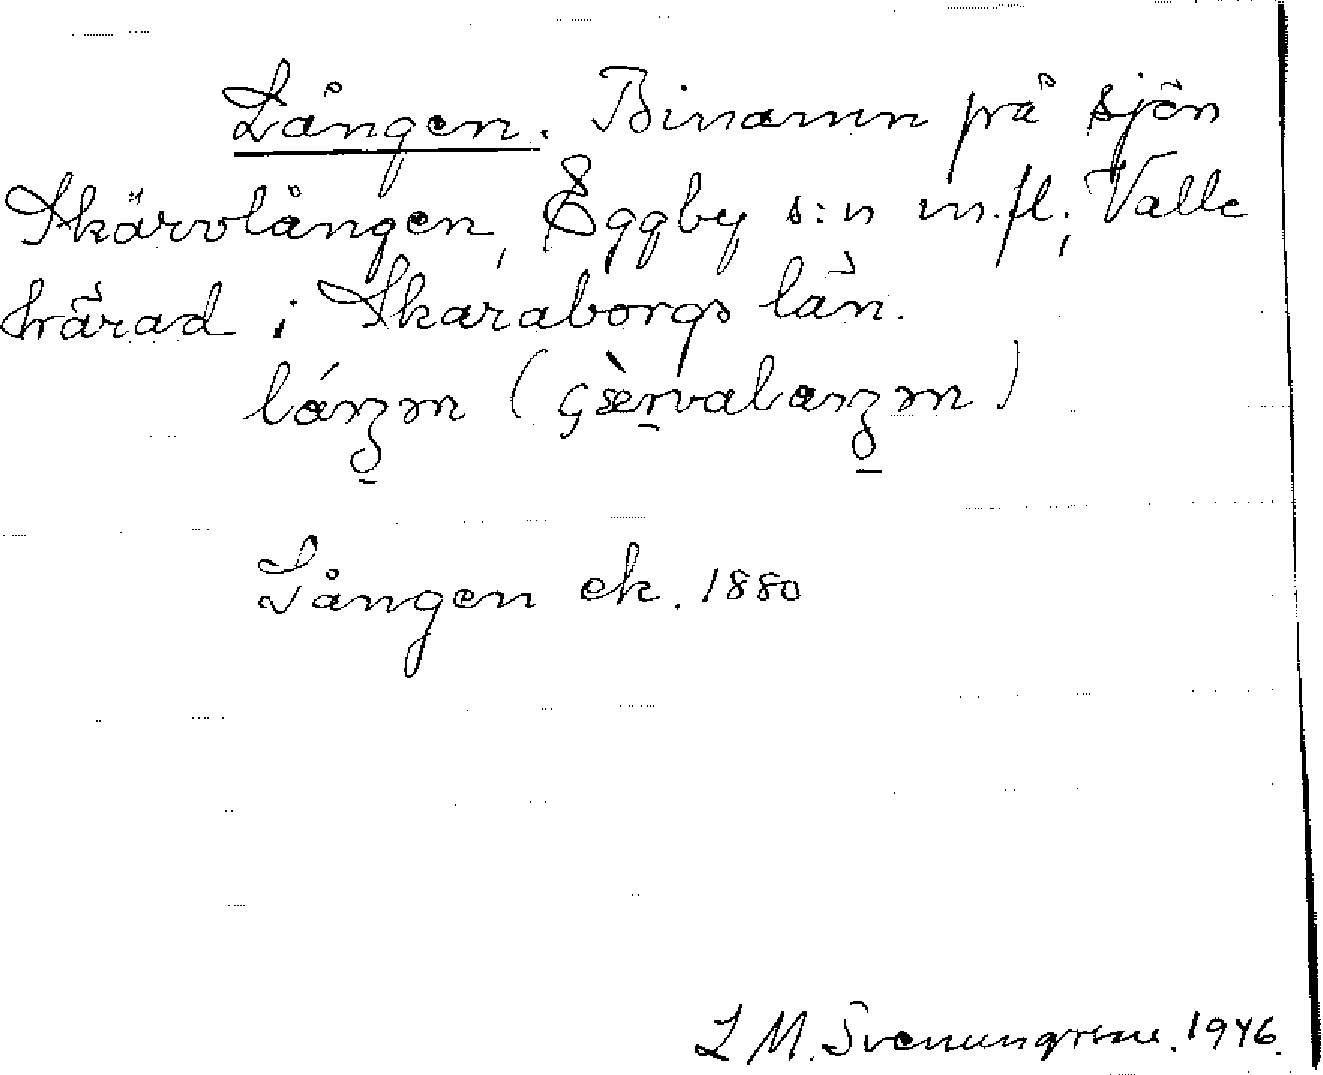 Lången. Binamn på sjön
Skärvlången, Eggby s:n m.fl., Valle
härad i Skaraborgs län.
Lången ek. 1880
L M. Svenungsson. 1946.